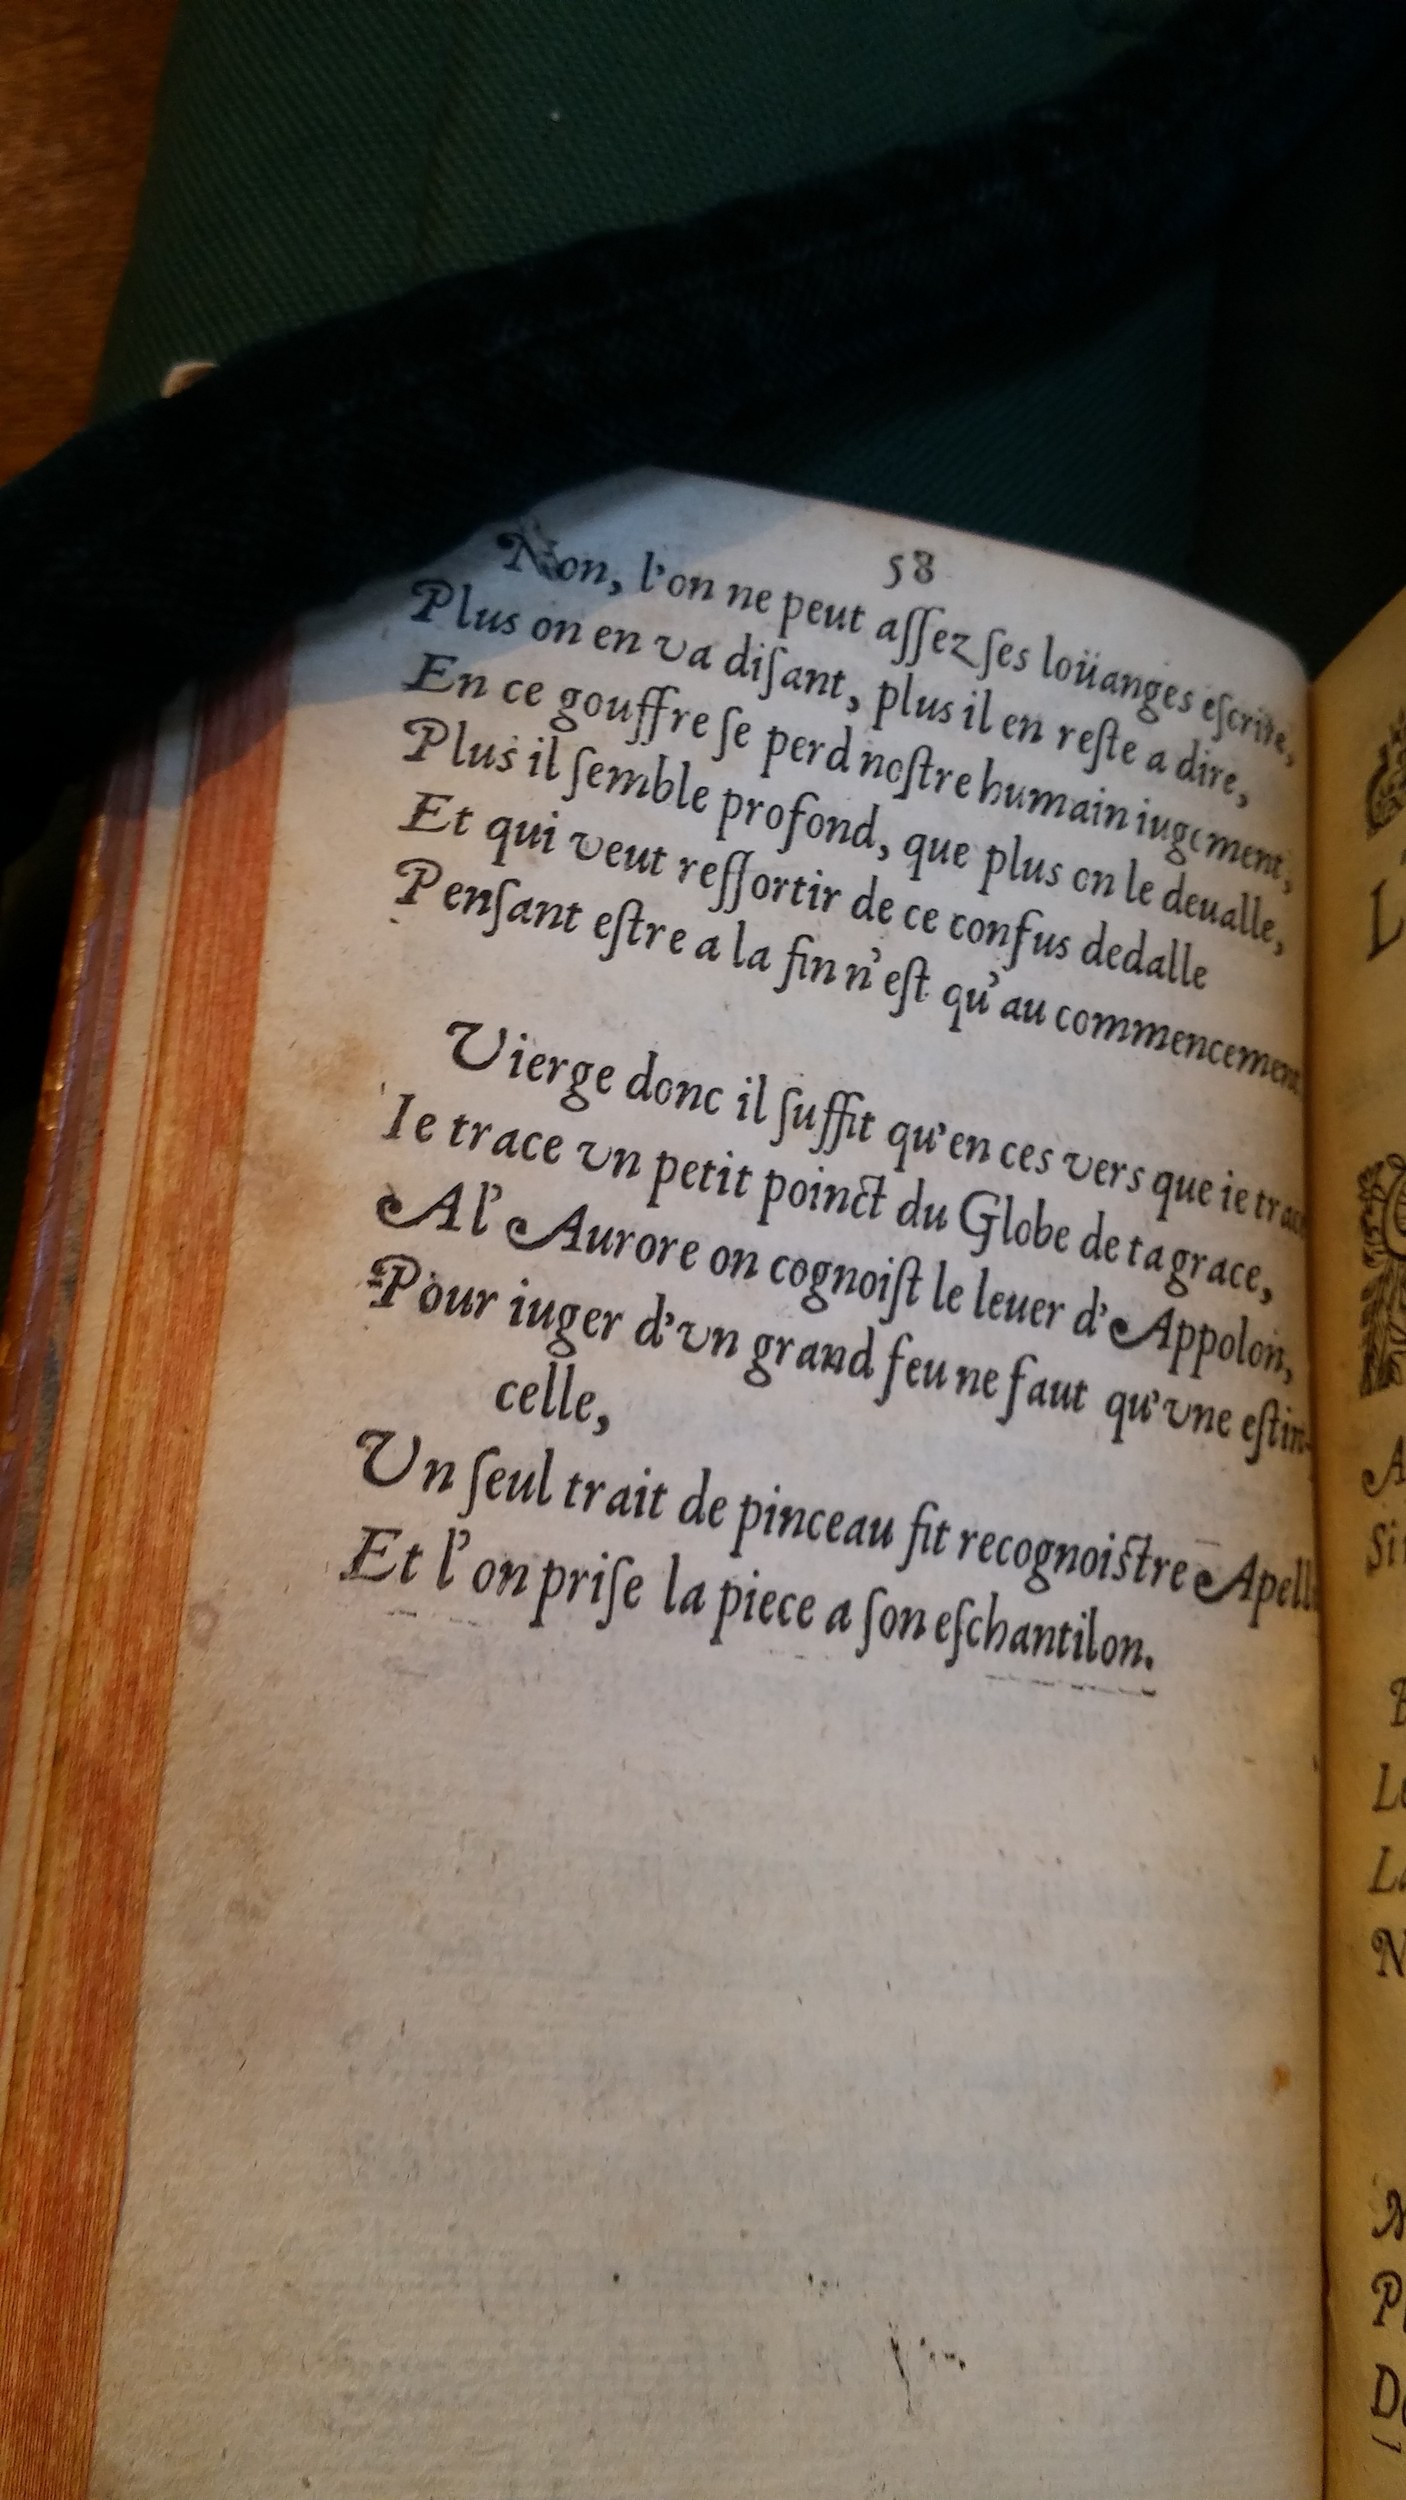 58
Non, l'on ne peut aſſez ſes loüanges eſcrire,
Plus on en va diſant, plus il en reſte a dire,
En ce gouffre ſe perd noſtre humain iugement,
Plus il ſemble profond, que plus on le deualle,
Et qui veut reſſortir de ce confus dedalle
Penſant eſtre a la fin n'eſt qu'au commencement
Vierge donc il ſuffit qu'en ces vers que ie trace
Ie trace vn petit poinct du Globe de ta grace,
A l'Aurore on cognoiſt le leuer d'Appolon,
Pour iuger d'vn grand feu ne faut qu'vne eſtin-
celle,
Vn ſeul trait de pinceau fit recognoiſtre Apell
Et l'on priſe la piece a ſon eſchantilon.
L
A
Si
L
N
P
D